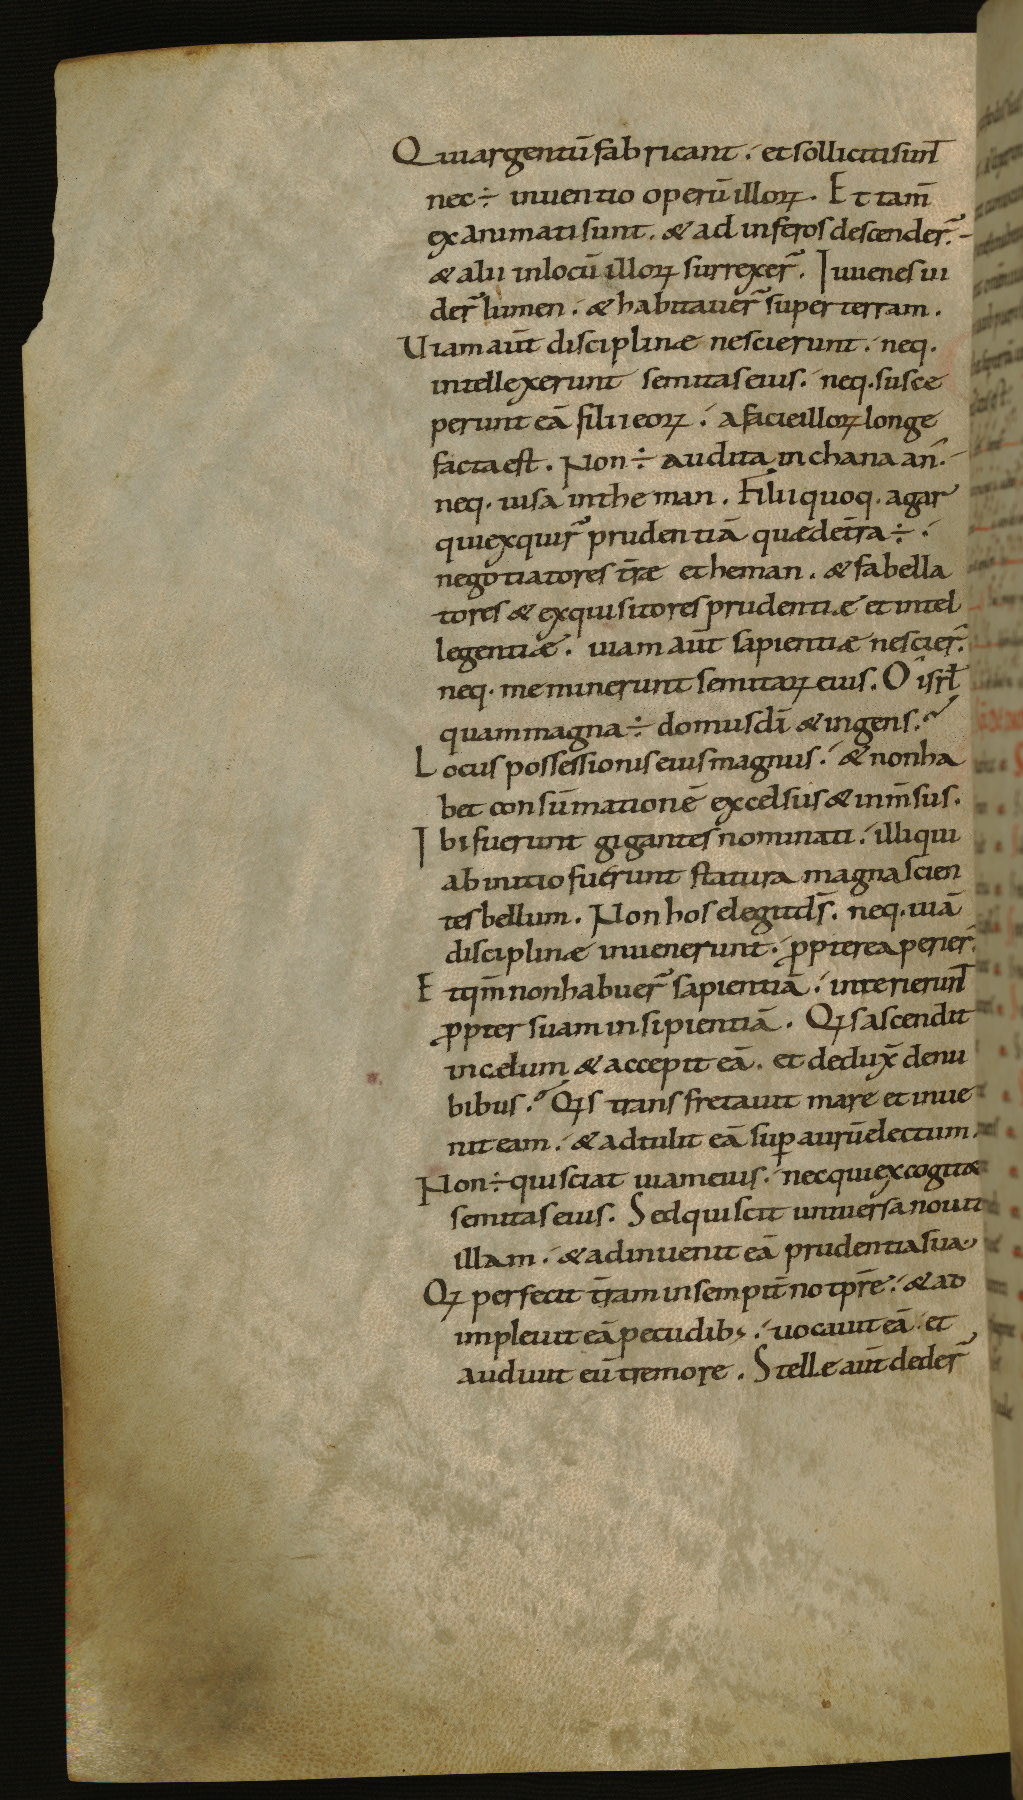 Qui argentū fabricant. et solliciti sunt̄
nec ÷ inventio operū illoꝝ. Et tam̄
exanimati sunt. & ad inferos descender̄.
& alii in locū illoꝝ surrexer̄. Iuuenes ui
der̄ lumen. & habitauer̄ super terram.
Uiam aūt disciplinæ nescierunt. neq.
intellexerunt semitas eius. neq. susce
perunt eā filii eoꝝ. a facie illoꝝ longe
facta est. Non ÷ audita in chanaan.
neq. uisa in theman. Filii quoq. agar
qui exquir̄ prudentiā quæ de tr̄a ÷.
negotiatores tr̄æ et heman. & fabella
tores & exquisitores prudentiæ et intel
legentiæ. uiam aūt sapientiæ nescier̄.
neq. meminerunt semitaꝝ eius. O isrł
quam magna ÷ domus dī & ingens.
Locus possessionis eius magnus. & non ha
bet consūmationē excelsus & inm̄sus.
Ibi fuerunt gigantes nominati. illi qui
ab initio fuerunt statura magna scien
tes bellum. Non hos elegit ds̄. neq. uiā
disciplinæ inuenerunt. ꝓpterea perier̄.
Et qm̄ non habuer̄ sapientiā. interierunt̄
ꝓpter suam insipientiā. Qꝭs ascendit
in cælum & accepit eā. et dedux̄ de nu
bibus. Qꝭs transfretauit mare et inue
nit eam. & adtulit eā suꝑ aurū electum.
Non ÷ qui sciat uiam eius. nec qui excogitæ
semitas eius. Sed qui scit uniuersa nouit
illam. & adinuenit eā prudentia sua
Qꝭ perfecit tr̄am in sempit̄no tp̄re. & ad
impleuit eā pecudib; . uocauit eā et
audiuit eū tremore. Stelle aūt deder̄